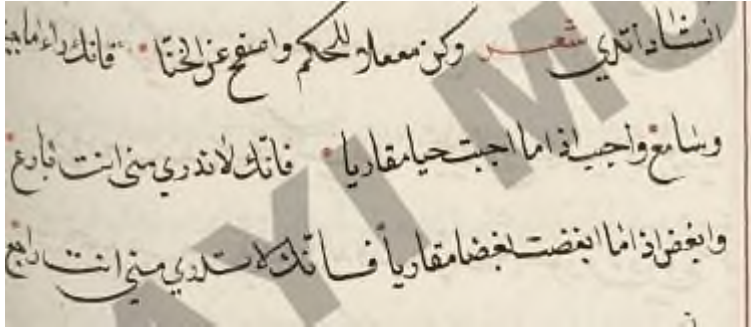 انشاد اتدي شعر وكن معملا للحكم واصفح عن الخنا فانك راء ما
وسامع واحبب اذا ما احببت حبا مقاربا فانك لا تدري متى انت نازع
وابغض اذا ما ابغضت بغضا مقاربا فانك لا تدري متى انت راجع